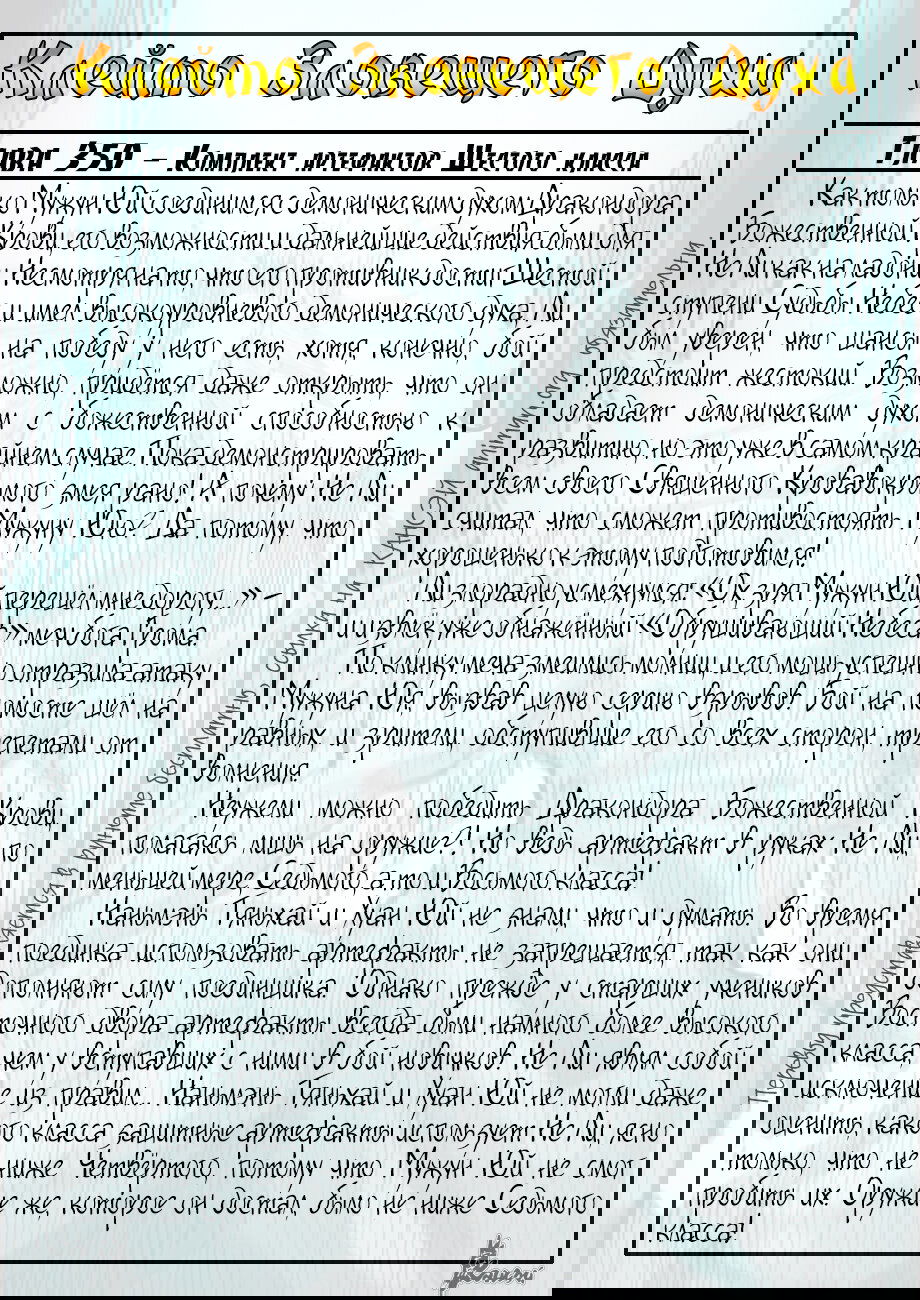 Клеймо Зловещего Духа
Глава 350 – Комплект артефактов Шестого класса
Как только Мужун Юй соединился с демоническим духом Дракондора
Божественной Крови, его возможности и дальнейшие действия были для
Не Ли как на ладони! Несмотря на то, что его противник достиг Шестой
ступени Судьбы Небес и имел высокоуровневого демонического духа, Ли
был уверен, что шансы на победу у него есть, хотя, конечно, бой
предстоит жестокий. Возможно, придётся даже открыть, что он
обладает демоническим духом с божественной способностью к
развитию, но это уже в самом крайнем случае. Пока демонстрировать
всем своего Священного Кровавокрылого змея рано! А почему Не Ли
считал, что сможет противостоять Мужуну Юю? Да потому, что
хорошенько к этому подготовился!
Ли злорадно усмехнулся: «Ох зря Мужун Юй перешёл мне дорогу...» –
и извлёк уже обнажённый «Обрушивающий Небеса» меч бога Грома.
По клинку меча змеились молнии, и его мощь успешно отразила атаку
Мужуна Юя, вызвав целую серию взрывов! Бой на помосте шёл на
равных, и зрители, обступившие его со всех сторон, трепетали от
волнения.
Неужели можно победить Дракондора Божественной Крови,
полагаясь лишь на оружие?! Но ведь артефакт в руках Не Ли, по
меньшей мере, Седьмого, а то и Восьмого класса!
Наньмэнь Тяньхай и Хуан Юй не знали, что и думать. Во время
поединка использовать артефакты не запрещается, так как они
дополняют силу поединщика. Однако прежде у старших учеников
Восточного двора артефакты всегда были намного более высокого
класса, чем у вступавших с ними в бой новичков. Не Ли являл собой
исключение из правил... Наньмэнь Тяньхай и Хуан Юй не могли даже
оценить, какого класса защитные артефакты использует Не Ли, ясно
только, что не ниже Четвёртого, потому что Мужун Юй не смог
пробить их. Оружие же, которое он достал, было не ниже Седьмого
класса!